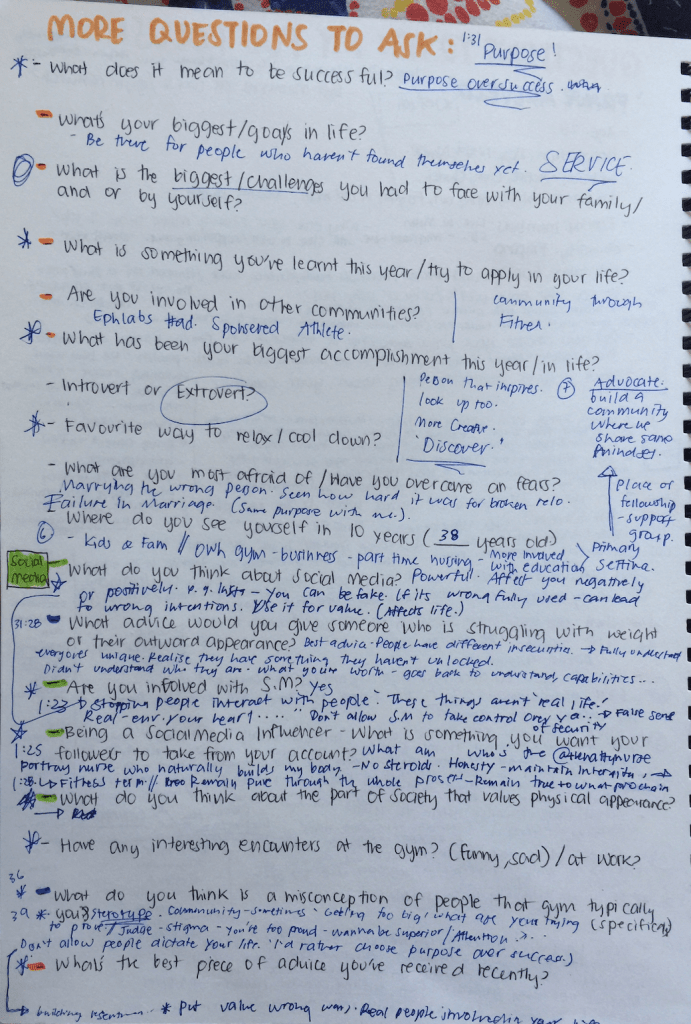 MORE QUESTIONS TO ASK: 1:31 Purpose!
* - What does it mean to be successful? Purpose over success.
- What's your biggest/goals in life?
- Be there for people who haven't found themselves yet. SERVICE.
- What is the biggest/challenges you had to face with your family/
and or by yourself?
* - What is something you've learnt this year/try to apply in your life?
- Are you involved in other communities?
Ephlabs Had. Sponsered Athlete.
community through
Fitness.
* - What has been your biggest accomplishment this year/in life?
- Introvert or Extrovert?
Person that inspires.
look up too.
More Creative.
'Discover.'
7 Advocate.
build a
community
where we
share same
mindset.
* - Favourite way to relax/cool down?
- What are you most afraid of/Have you overcome an fears?
Marrying the wrong person. Seen how hard it was for broken relo.
Failure in Marriage. (Same purpose with me.).
Place of
fellowship
- support
group.
- Where do you see yourself in 10 years (38 years old)
6 - Kids & Fam // own gym - business - part time nursing - More involved
with education > Primary
setting.
Social
media
- What do you think about Social Media? Powerful. Affect you negatively
* or positively. e.g. Insta - You can be fake. If its wrong fully used - can lead
to wrong intentions. Use it for value. (Affects life.)
31:28 - What advice would you give someone who is struggling with weight
or their outward appearance? Best advice - People have different insecurities. → Fully understand
everyones unique. Realise they have something they haven't unlocked.
Didn't understand who they are. What your worth - goes back to understand capabilities...
* - Are you involved with S.M? Yes
1:23 → Stopping people interact with people. These things aren't 'real life.'
Real - env. your heart.... "Don't allow S.M to take control over ya... → False sense
of security
* - Being a Social Media Influencer - What is something you want your
1:25 followers to take from your account? What am who's the
Portray nurse who naturally builds my body - No steroids. Honesty - maintain integrity →
Fitness term // Remain pure through the whole process - Remain true to what
* - What do you think about the part of society that values physical appearance?
* - Have any interesting encounters at the gym? (funny, sad)/at work?
36
* - What do you think is a misconception of people that gym typically
39 * - your stereotype. Community - sometimes 'Getting too big, what are you trying (specifically)
to prove/Judge - stigma - You're too proud - wannabe superior/Attention?..
Don't allow people dictate your life. 'I'd rather choose purpose over success.)
* - What's the best piece of advice you've received recently?
→ building * Put value wrong ways. Real people involved in your